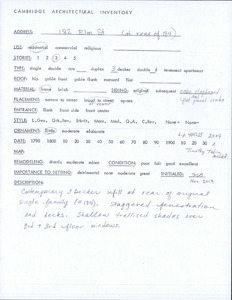 CAMBRIDGE ARCHITECTURAL INVENTORY
ADDRESS: 182 Elm St (at rear of 184)
USE: residential commercial religious
STORIES: 1 2 3 4 5
TYPE: single double row duplex 3 decker double 3 tenement apartment
ROOF: hip gable front gable flank mansard flat
MATERIAL: frame brick SIDING: original
PLACEMENT: narrow to street broad to street
ENTRANCE: flank front side front centre
ORNAMENT: little moderate elaborate
DATE: 1790 1800 10 20 30 40 50 60 70 80 90 1900 10 20 30
REMODELING: drastic moderate minor CONDITION: poor fair good excellent
IMPORTANCE TO SETTING: detrimental none moderate great INITIALED:
Nov. 2019
DESCRIPTION:
Contemporary 3 decker infill at rear of original
single family (#184). Staggered fenestration
and decks. Shallow trellised shades over
2nd + 3rd floor windows.